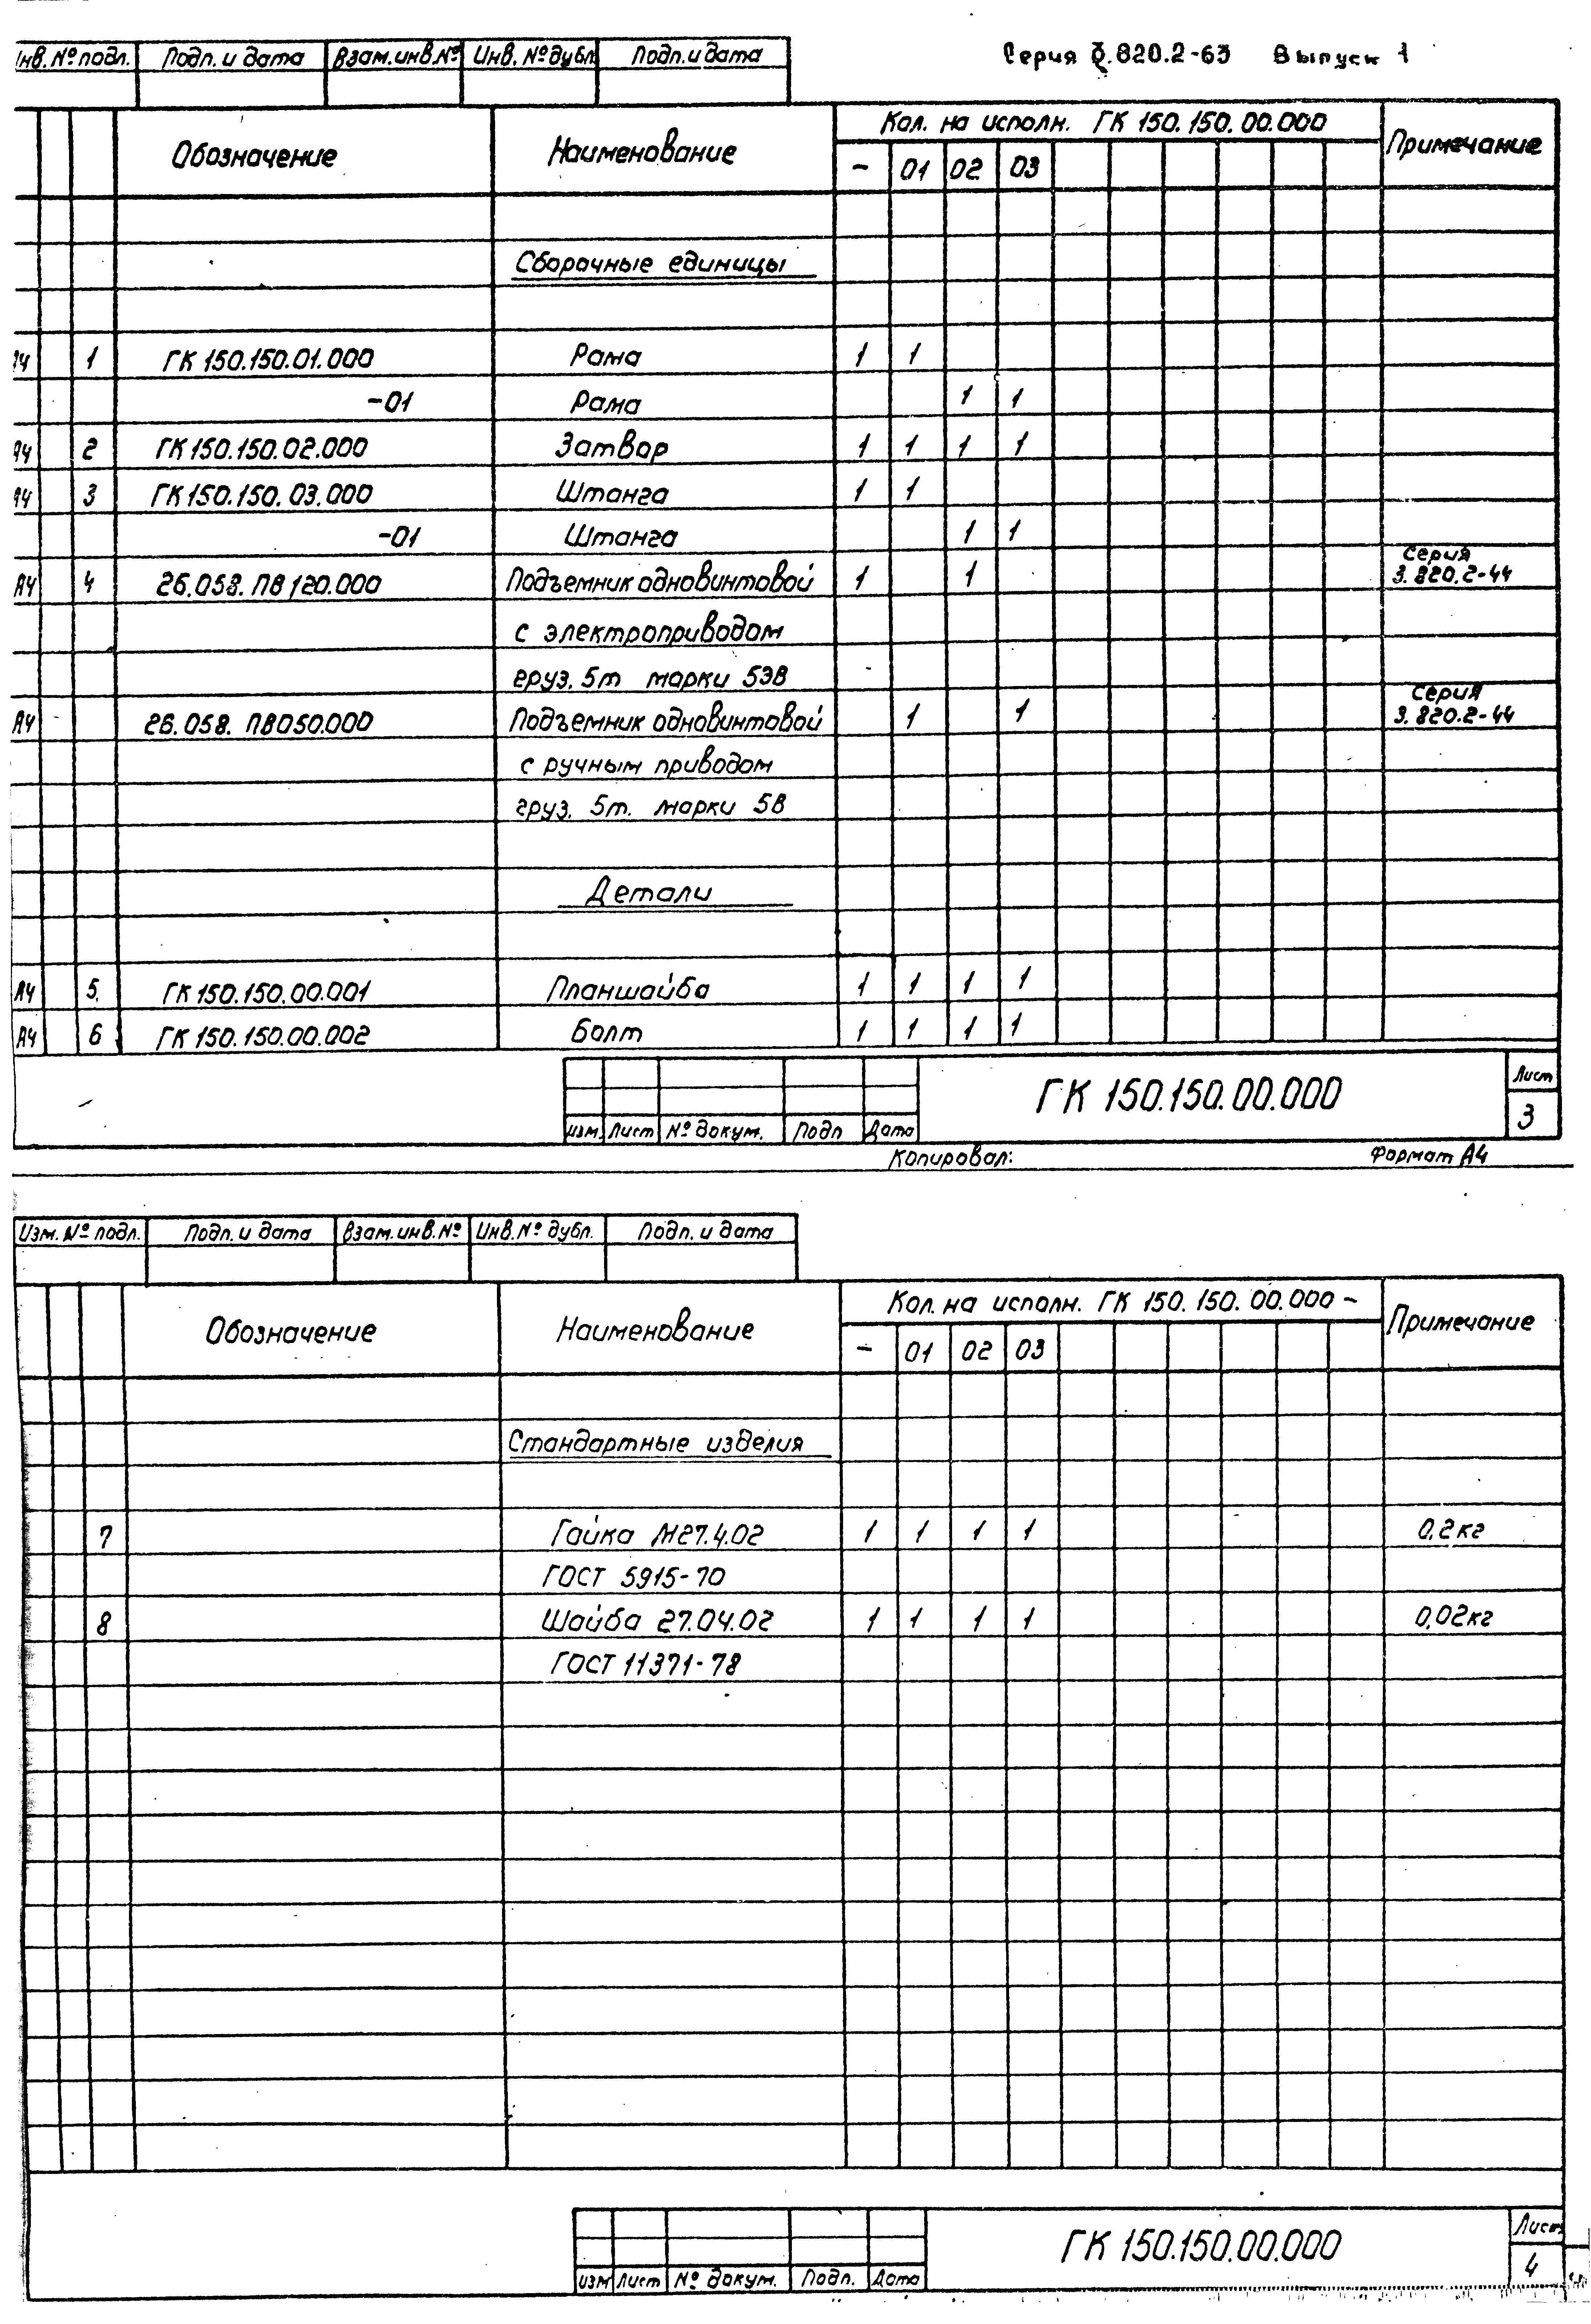 Инв. № подл. Подп. и дата Взам. инв. № Инв. № дубл. Подп. и дата
Серия 3.820.2-63 Выпуск 1
Обозначение Наименование Кол. на исполн. ГК 150.150.00.000 Примечание
- 01 02 03
Сборочные единицы
А4 1 ГК 150.150.01.000 Рама 1 1
-01 Рама 1 1
А4 2 ГК 150.150.02.000 Затвор 1 1 1 1
А4 3 ГК 150.150.03.000 Штанга 1 1
-01 Штанга 1 1
Серия
А4 4 26.058. ПВ120.000 Подъемник одновинтовой 1 1 3.820.2-44
с электроприводом
груз. 5т марки 5ЭВ
Серия
А4 26.058. ПВ050.000 Подъемник одновинтовой 1 1 3.820.2-44
с ручным приводом
груз. 5т. марки 5В
Детали
А4 5. ГК 150.150.00.001 Планшайба 1 1 1 1
А4 6 ГК 150.150.00.002 Болт 1 1 1 1
ГК 150.150.00.000
Лист
3
Изм. Лист № докум. Подп Дата
Копировал: Формат А4
Изм. № подл. Подп. и дата Взам. инв. № Инв. № дубл. Подп. и дата
Обозначение Наименование Кол. на исполн. ГК 150.150.00.000 - Примечание
- 01 02 03
Стандартные изделия
7 Гайка М27.4.02 1 1 1 1 0,2кг
ГОСТ 5915-70
8 Шайба 27.04.02 1 1 1 1 0,02кг
ГОСТ 11371-78
ГК 150.150.00.000
Лист
4
Изм Лист № докум. Подп. Дата